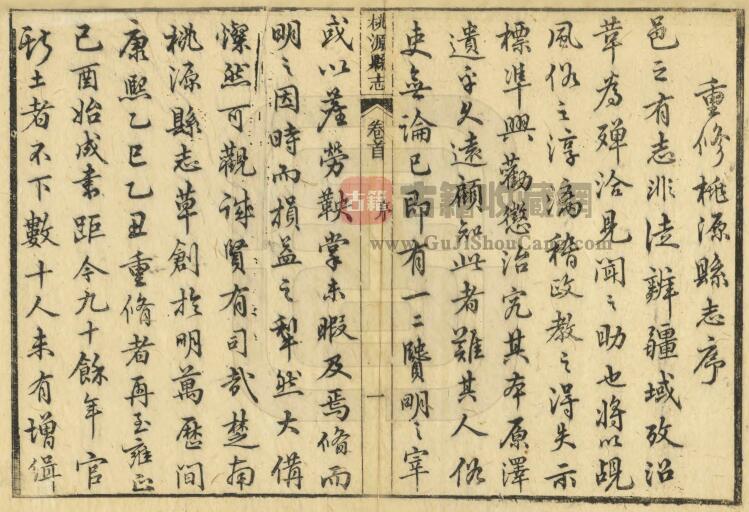 重修桃源縣志序
邑之有志非徒辨疆域攷沿
革為殫洽見聞之助也將以覘
風俗之淳漓稽政教之得失示
標準興勸懲治究其本原澤
遺乎久遠顧知此者難其人俗
吏無論已即有一二賢明之宰
桃源縣志
卷首
序
一
或以產勞鞅掌未暇及焉脩而
明之因時而損益之犁然大備
燦然可觀誠賢有司哉楚南
桃源縣志草創於明萬歷間
康熙乙巳乙丑重脩者再至雍正
己酉始成素距今九十餘年官
斯土者不下數十人未有增緝
古籍
古籍收藏網
www.GuJiShouCang.com